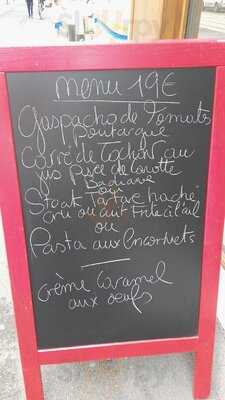 menu 19€
Gaspacho de Tomates
Poutargue
Carré de Cochon au
jus Purée de carotte
Badiane
ou
Steak Tartare haché
cru ou cuit Frite à l'ail
ou
Pasta aux Encornets
Crème Caramel
aux oeufs